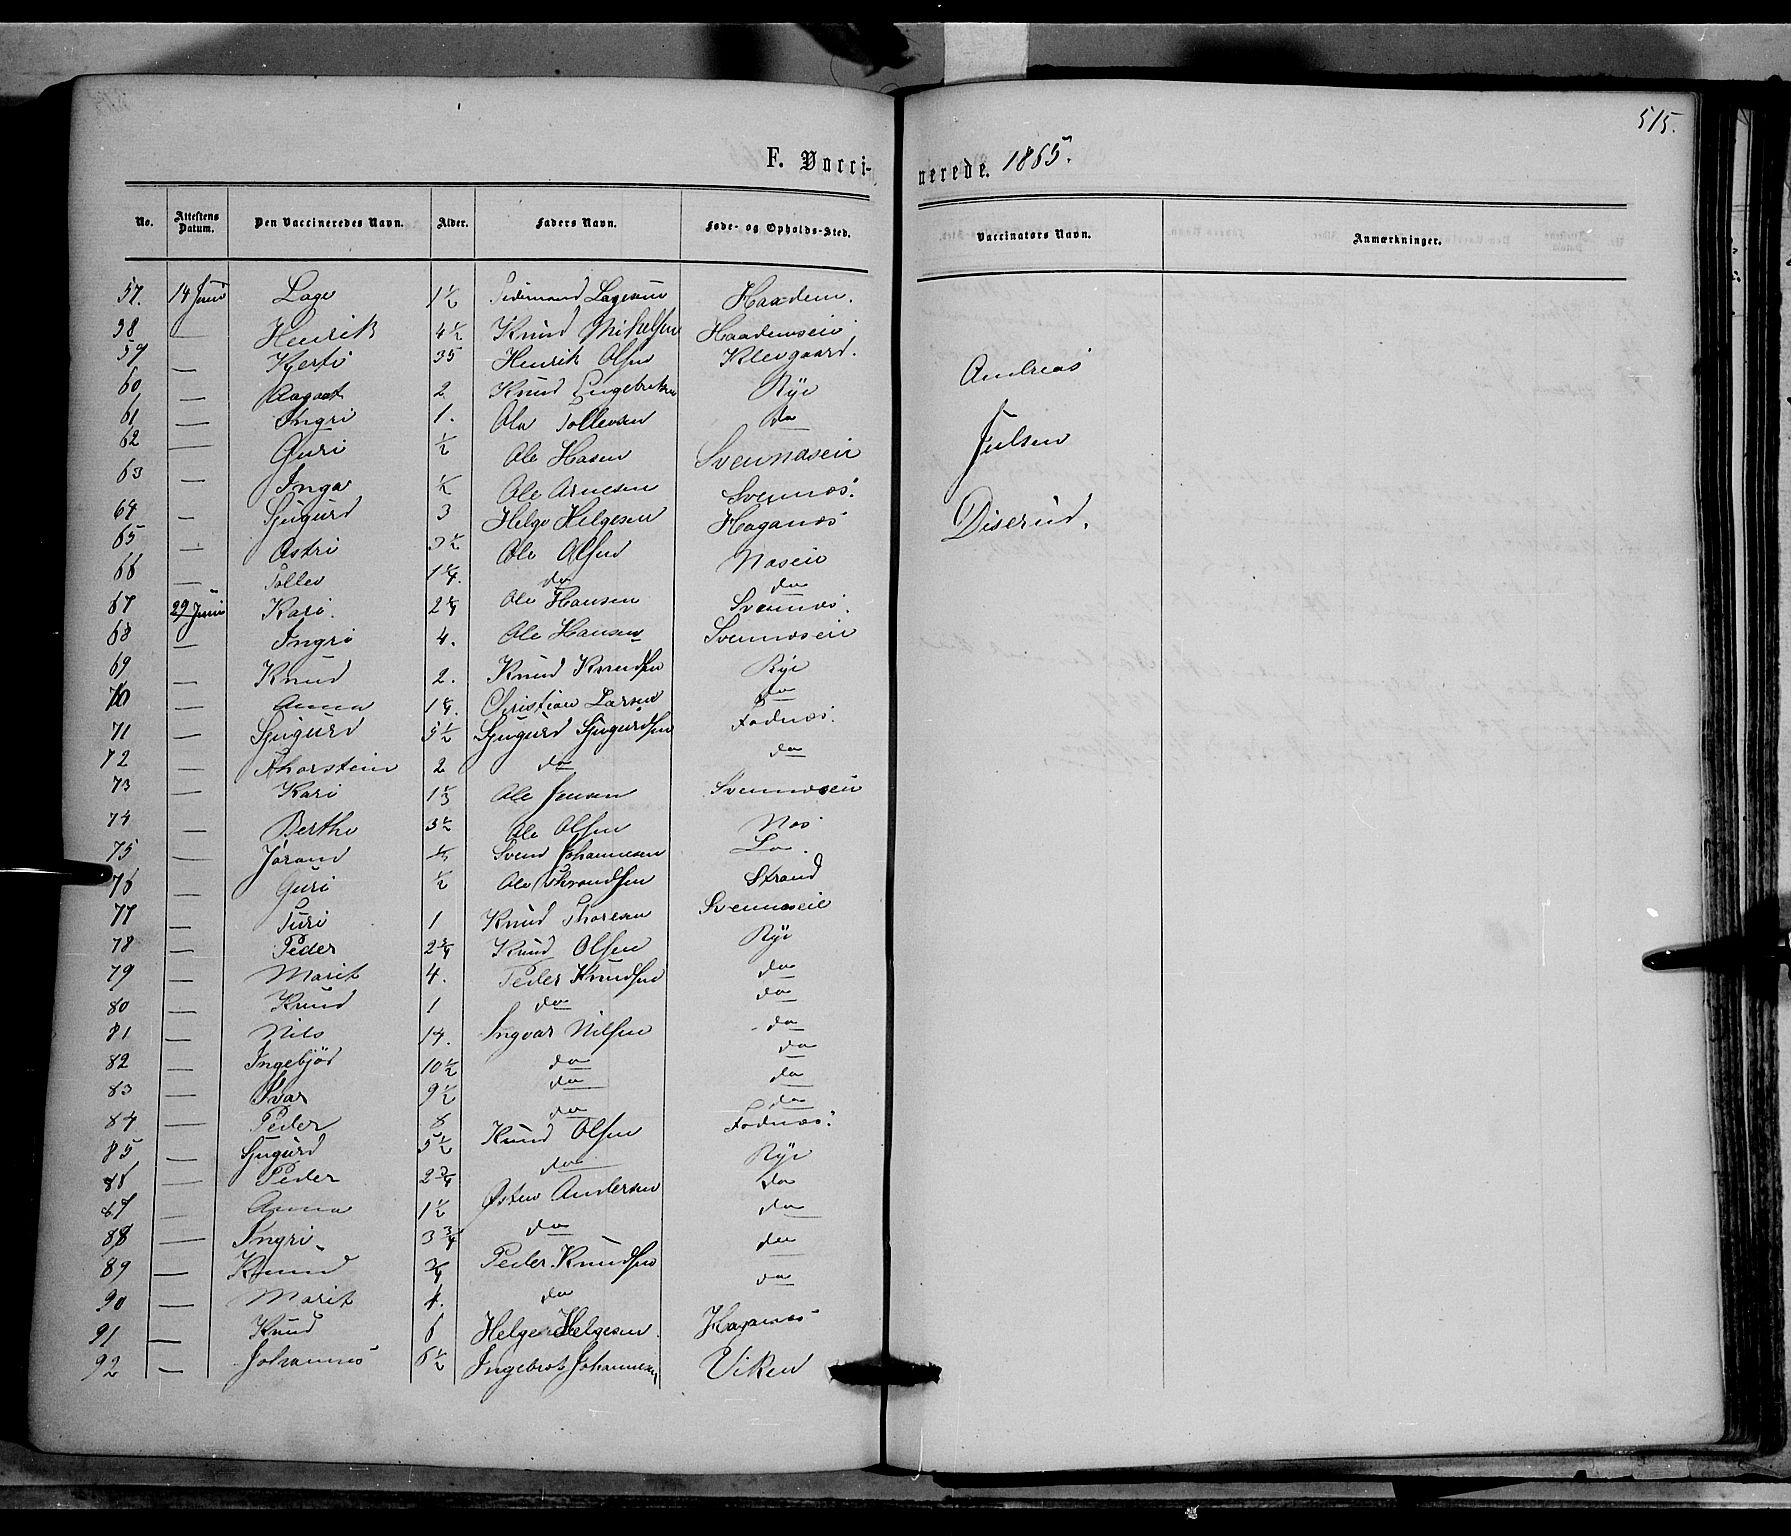 515.
F. Vacci-nerede. 1865.
No. Attestens Datum. Den Vaccineredes Navn. Alder. Faders Navn. Føde- og Opholds-Sted. Vaccinatørs Navn. Anmærkninger.
57. 14 Juni Lage 1 1/2 Lagesen Haadem.
58 — Henrik 4 1/2 Knud Mikelsen Haademseie
59 — Kjersti 35 Henrik Olsen Klevgaard.
60 — Aagaat 2 Knud Engebretsen Rye
61 — Ingri 1. Ola Tollevsen do
62 — Guri 1/2 Ole Hasen Svennæseie
63 — Inga 1/2 Ole Arnesen Svennæs.
64 — Sjugurd 3 Helge Helgesen Haganæs
65 — Astri 3 1/2 Ole Olsen Næseie
66 — Tollev 1 1/4. do do
67 29 Juni Kari 2 1/4 Ole Hansen Svennæs.
68 — Ingri 4. Ole Hansen Svennæseie
69 — Knud 2. Knud Knudsen Rye
70 — Anna 1 1/4. Christian Larsen do
71 — Sjugurd 5 1/2 Sjugurd Sjugurdsen Fodnæs.
72 — Thorstein 2 do do
73 — Kari 1 1/3 Ole Jensen Svennæseie
74 — Berthe 3 1/2 Ole Olsen Næs
75 — Jørand Svend Johannesen Lo.
76 — Guri 1/2 Ole Throndsen Strand
77 — Turi 1 Knud Thoresen Svennæseie
78 — Peder 2 3/4 Knud Olsen Rye
79 — Marit 4. Peder Knudsen do
80 — Knud 1 do do
81 — Nils 14. Ingvar Nilsen do
82 — Ingebjød 10 1/2 do do
83 — Ivar 9 1/2 do do
84 — Peder 8 do do
85 — Sjugurd 5 1/2 Knud Olsen Fodnæs.
86 — Peder 2 3/4 do Rye
87 — Anna 1 1/2 Østen Andersen do
88 — Ingri 3 3/4 do do
89 — Knud 3/4 Peder Knudsen do
90 — Marit 4. do do
91 — Knud 6 Helge Helgesen. Haganæs
92 — Johannes 6 1/2 Ingebret Johannesen Viken
Andreas
Julsen
Diserud.